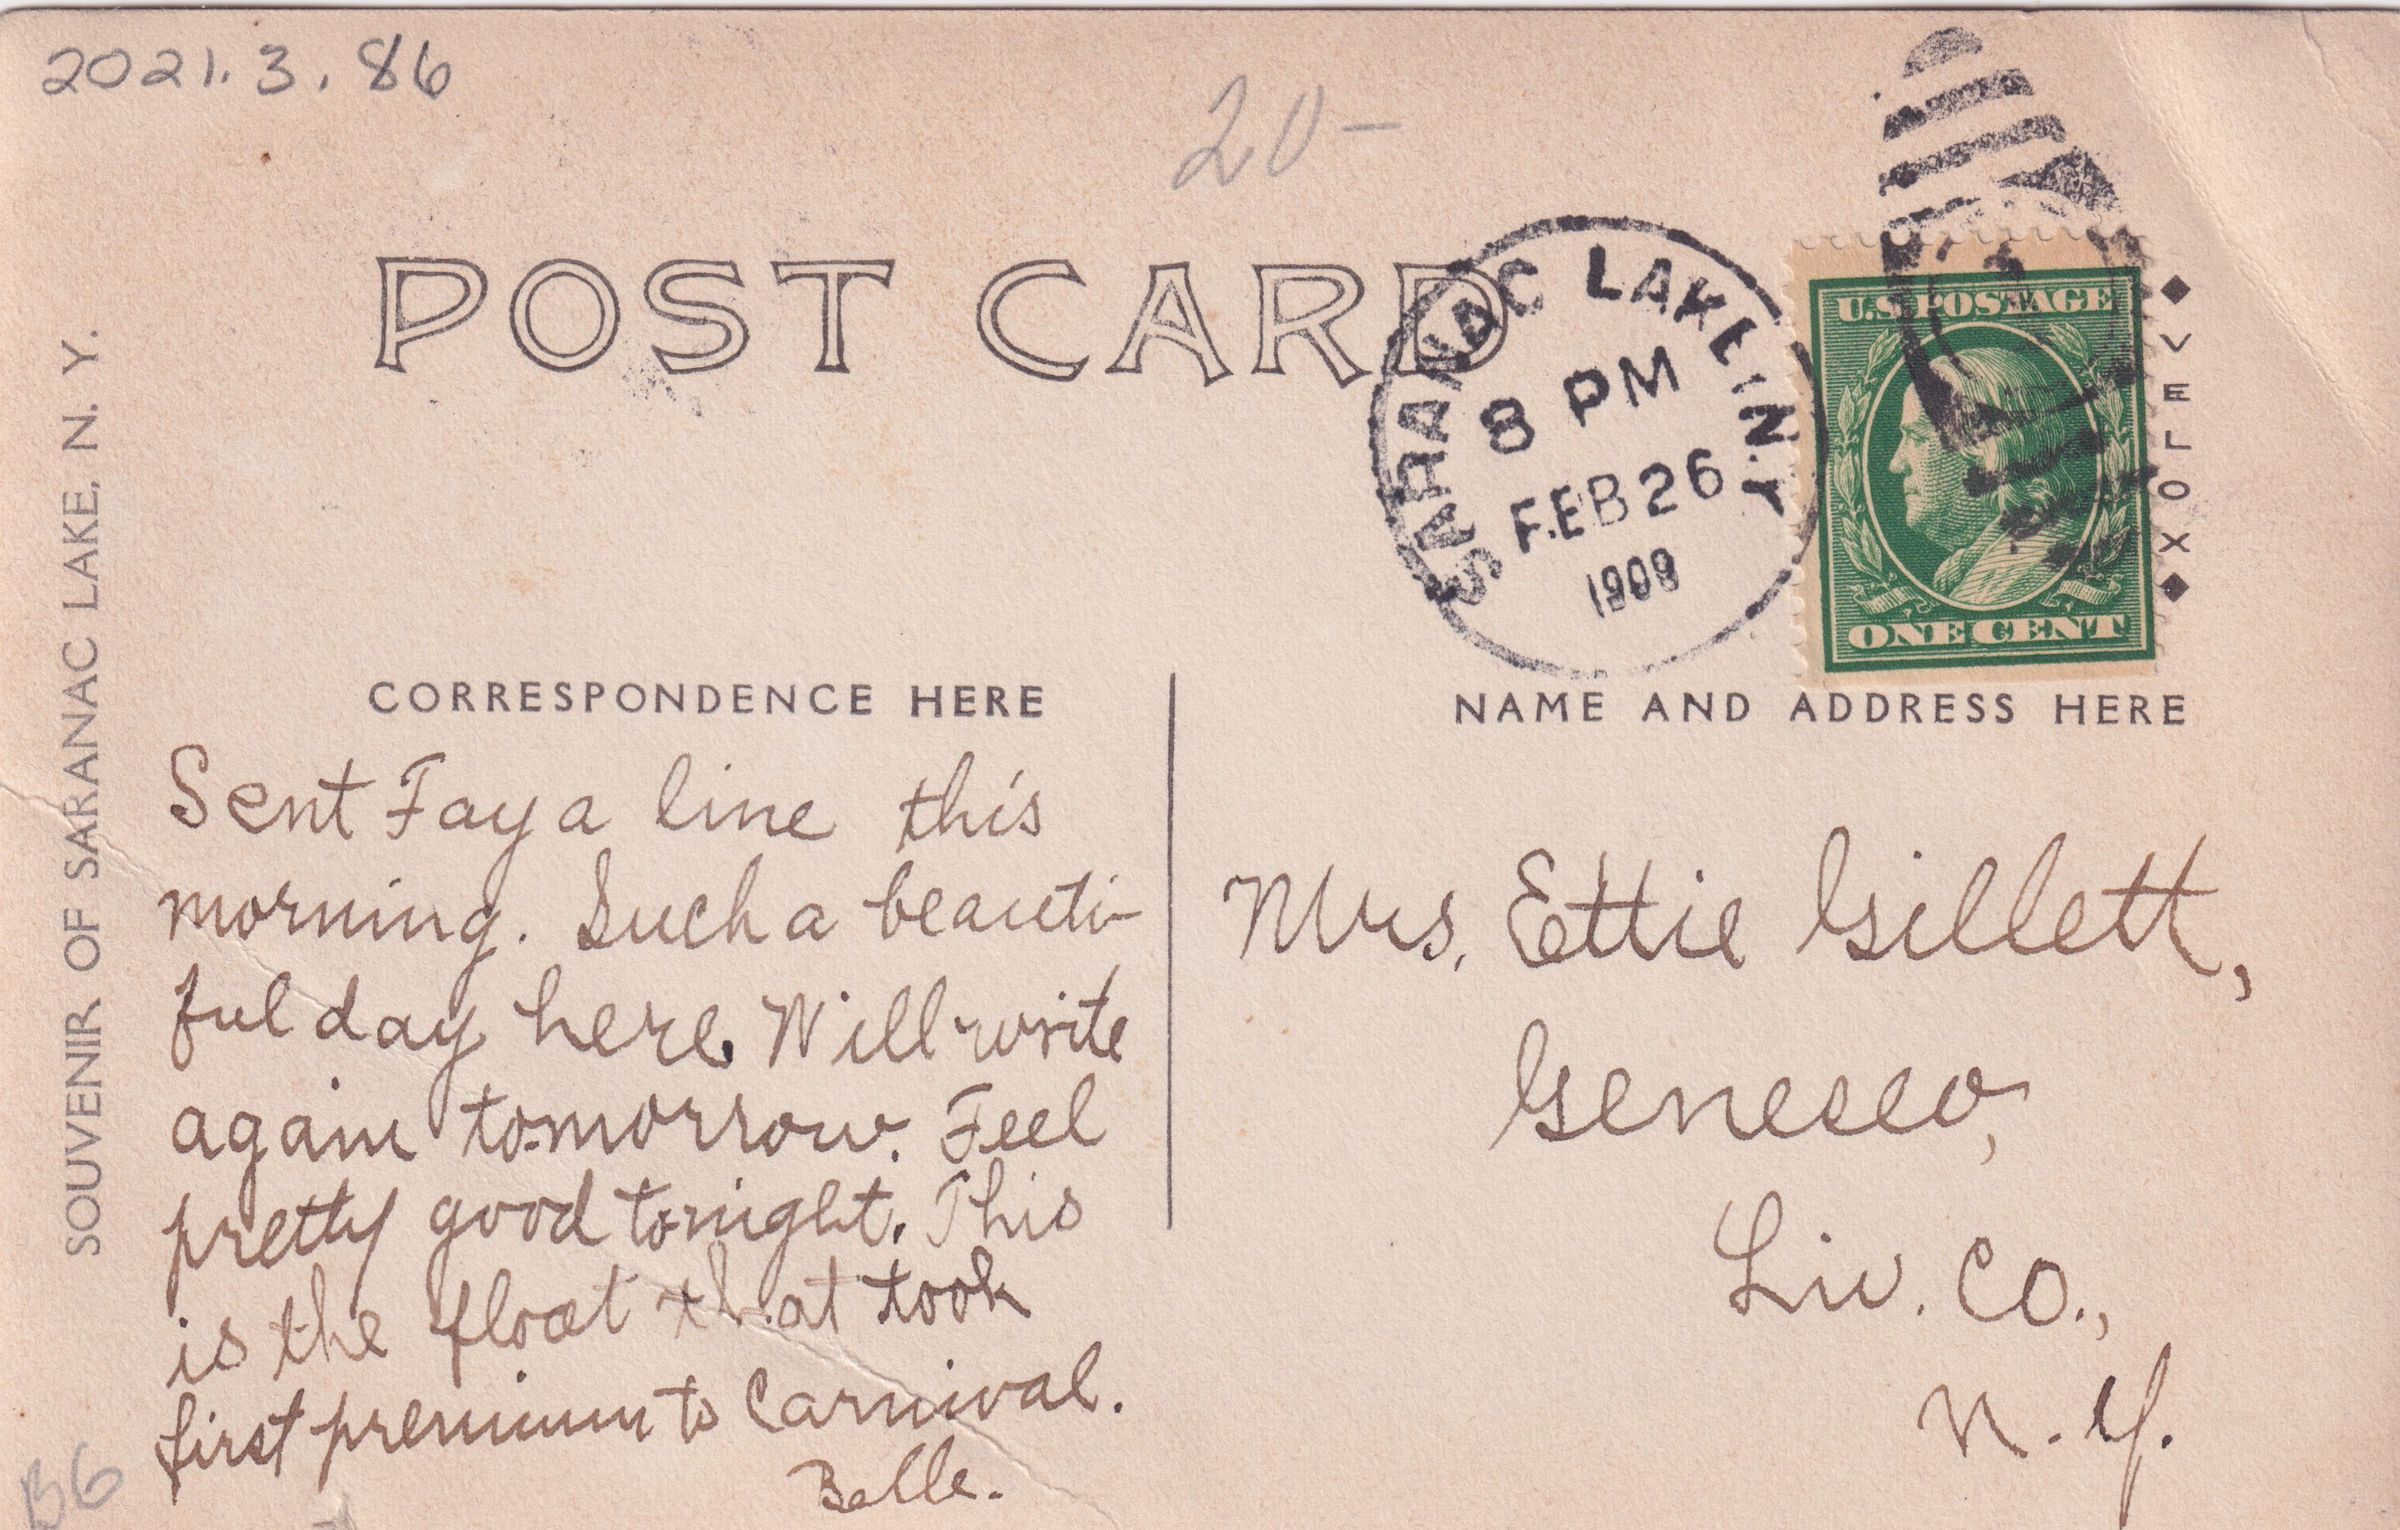 2021.3.86
20-
POST CARD
SARANAC LAKE, N.Y.
8 PM
FEB 26
1909
U.S. POSTAGE
ONE CENT
VELOX
SOUVENIR OF SARANAC LAKE, N. Y.
CORRESPONDENCE HERE
Sent Fay a line this
morning. Such a beauti-
ful day here. Will write
again to-morrow. Feel
pretty good to-night. This
is the float that took
first premium to Carnival.
Belle.
NAME AND ADDRESS HERE
Mrs. Ettie Gillett,
Geneseo,
Liv. Co.,
N.Y.
B6